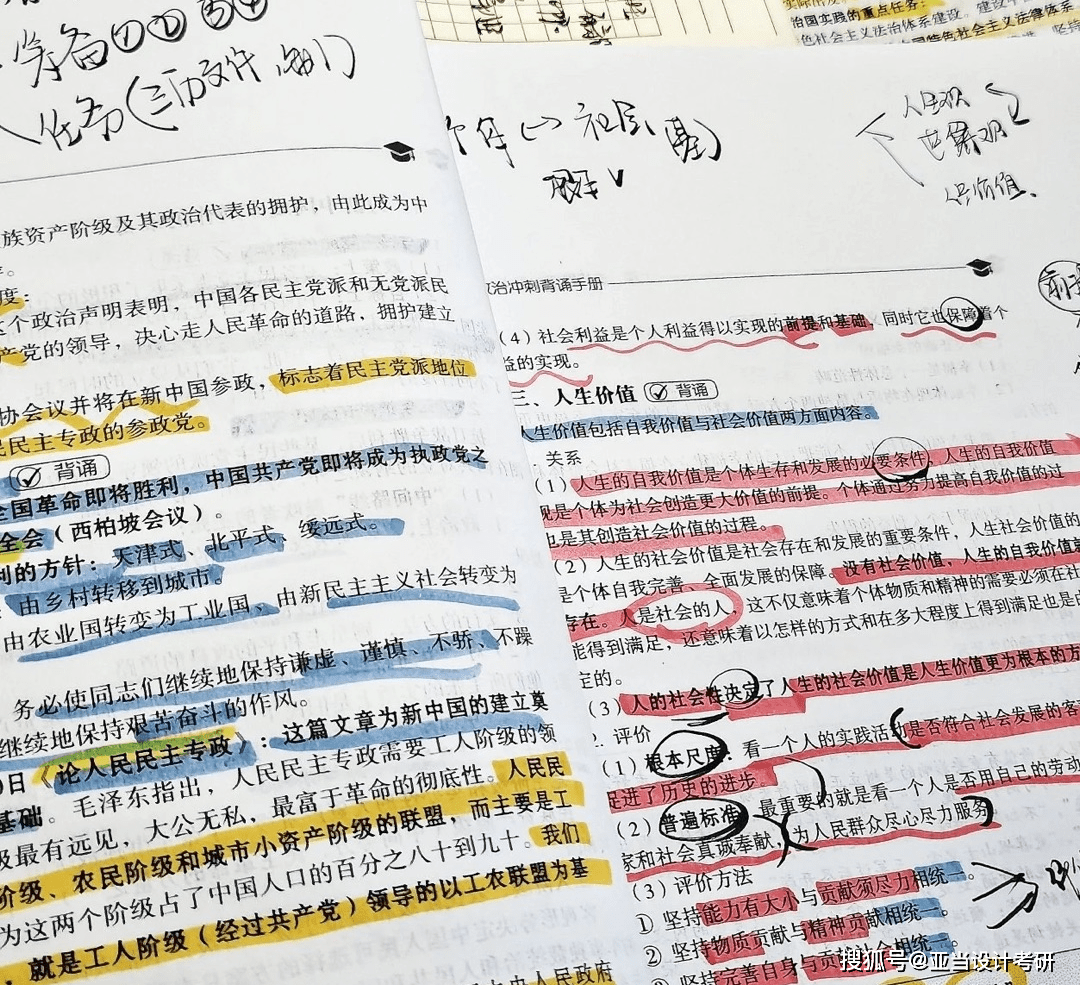 准备①①③④
任务(三历文件,
族资产阶级及其政治代表的拥护，由此成为中
。
度：
个政治声明表明，中国各民主党派和无党派民
，决心走人民革命的道路，拥护建立
产党的领导，
协会议并将在新中国参政，标志着民主党派地位
民民主专政的参政党。
背诵
全国革命即将胜利，中国共产党即将成为执政党之
全会（西柏坡会议）。
利的方针：天津式、北平式、绥远式。
由乡村转移到城市。
由农业国转变为工业国、由新民主主义社会转变为
务必使同志们继续地保持谦虚、谨慎、不骄、不躁
继续地保持艰苦奋斗的作风。
日《论人民民主专政》：这篇文章为新中国的建立奠
基础。毛泽东指出，人民民主专政需要工人阶级的领
级最有远见，大公无私，最富于革命的彻底性。人民民
阶级、农民阶级和城市小资产阶级的联盟，而主要是工
为这两个阶级占了中国人口的百分之八十到九十。我们
，就是工人阶级（经过共产党）领导的以工农联盟为基
中央人民政府
治国实践的重点任务：
色社会主义法治体系建设。建设中
特色社会主义法律体系
社会
人生观
世界观
价值
政治冲刺背诵手册
（4）社会利益是个人利益得以实现的前提和基础，同时它也保障着个
益的实现。
三、人生价值 背诵
人生价值包括自我价值与社会价值两方面内容。
关系
（1）人生的自我价值是个体生存和发展的必要条件，人生的自我价值
现是个体为社会创造更大价值的前提。个体通过努力提高自我价值的过
也是其创造社会价值的过程。
（2）人生的社会价值是社会存在和发展的重要条件，人生社会价值的
是个体自我完善、全面发展的保障。没有社会价值，人生的自我价值就
存在。人是社会的人，这不仅意味着个体物质和精神的需要必须在社
能得到满足，还意味着以怎样的方式和在多大程度上得到满足也是由
定的。
（3）人的社会性决定了人生的社会价值是人生价值更为根本的方
2. 评价
（1）根本尺度：看一个人的实践活动是否符合社会发展的客
促进了历史的进步
（2）普遍标准：最重要的就是看一个人是否用自己的劳动
家和社会真诚奉献，为人民群众尽心尽力服务
（3）评价方法
① 坚持能力有大小与贡献须尽力相统一。
② 坚持物质贡献与精神贡献相统一。
坚持完善自身与贡献社会相统一。
搜狐号@亚当设计考研